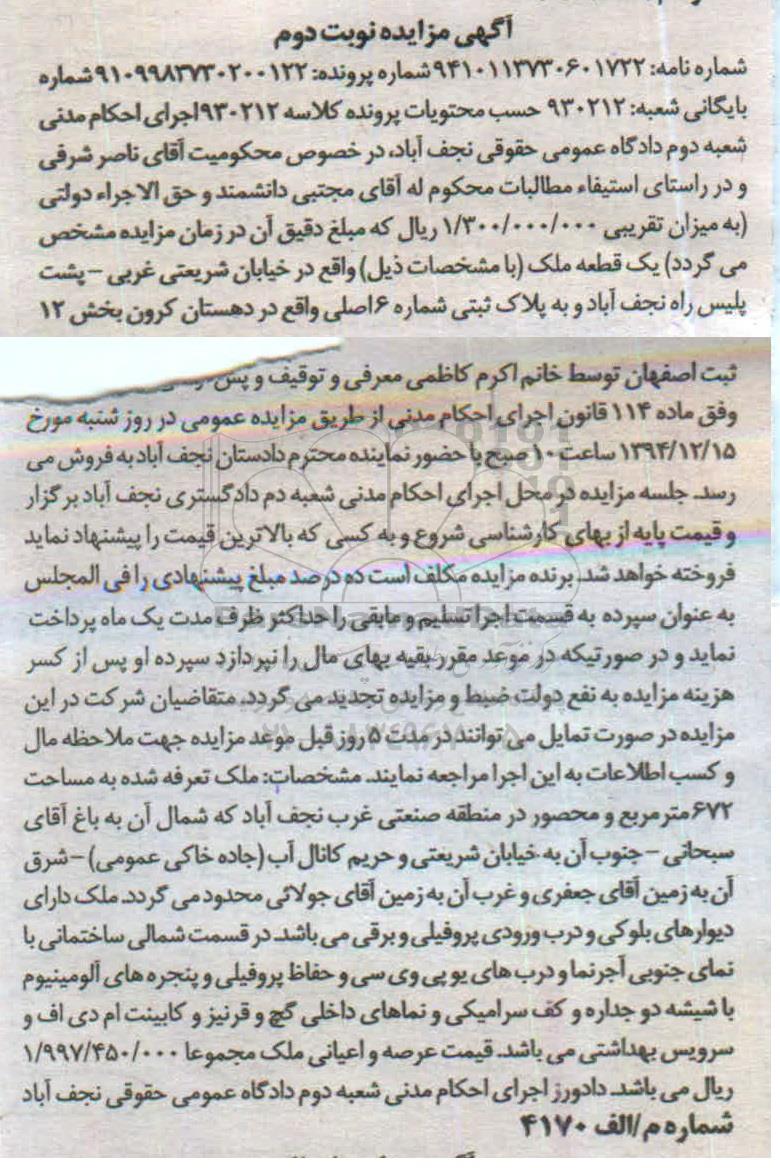 آگهی مزایده نوبت دوم
شماره نامه: ۹۴۱۰۱۱۳۷۳۰۶۰۱۷۲۲ شماره پرونده: ۹۱۰۹۹۸۳۷۳۰۲۰۰۱۲۲ شماره
بایگانی شعبه: ۹۳۰۲۱۲ حسب محتویات پرونده کلاسه ۹۳۰۲۱۲ اجرای احکام مدنی
شعبه دوم دادگاه عمومی حقوقی نجف آباد، در خصوص محکومیت آقای ناصر شرفی
و در راستای استیفاء مطالبات محکوم له آقای مجتبی دانشمند و حق الاجراء دولتی
(به میزان تقریبی ۱/۳۰۰/۰۰۰/۰۰۰ ریال که مبلغ دقیق آن در زمان مزایده مشخص
می گردد) یک قطعه ملک (با مشخصات ذیل) واقع در خیابان شریعتی غربی – پشت
پلیس راه نجف آباد و به پلاک ثبتی شماره ۶ اصلی واقع در دهستان کرون بخش ۱۲
ثبت اصفهان توسط خانم اکرم کاظمی معرفی و توقیف و پس
وفق ماده ۱۱۴ قانون اجرای احکام مدنی از طریق مزایده عمومی در روز شنبه مورخ
۱۳۹۴/۱۲/۱۵ ساعت ۱۰ صبح با حضور نماینده محترم دادستان نجف آباد به فروش می
رسد. جلسه مزایده در محل اجرای احکام مدنی شعبه دم دادگستری نجف آباد برگزار
و قیمت پایه از بهای کارشناسی شروع و به کسی که بالاترین قیمت را پیشنهاد نماید
فروخته خواهد شد. برنده مزایده مکلف است ده درصد مبلغ پیشنهادی را فی المجلس
به عنوان سپرده به قسمت اجرا تسلیم و مابقی را حداکثر ظرف مدت یک ماه پرداخت
نماید و در صورتیکه در موعد مقرر بقیه بهای مال را نپردازد سپرده او پس از کسر
هزینه مزایده به نفع دولت ضبط و مزایده تجدید می گردد. متقاضیان شرکت در این
مزایده در صورت تمایل می توانند در مدت ۵ روز قبل موعد مزایده جهت ملاحظه مال
و کسب اطلاعات به این اجرا مراجعه نمایند. مشخصات: ملک تعرفه شده به مساحت
۶۷۲ متر مربع و محصور در منطقه صنعتی غرب نجف آباد که شمال آن به باغ آقای
سبحانی – جنوب آن به خیابان شریعتی و حریم کانال آب (جاده خاکی عمومی) – شرق
آن به زمین آقای جعفری و غرب آن به زمین آقای جولائی محدود می گردد. ملک دارای
دیوارهای بلوکی و درب ورودی پروفیلی و برقی می باشد. در قسمت شمالی ساختمانی با
نمای جنوبی آجرنما و درب های یو پی وی سی و حفاظ پروفیلی و پنجره های آلومینیوم
با شیشه دو جداره و کف سرامیکی و نماهای داخلی گچ و قرنیز و کابینت ام دی اف و
سرویس بهداشتی می باشد. قیمت عرصه و اعیانی ملک مجموعا ۱/۹۹۷/۴۵۰/۰۰۰
ریال می باشد. دادورز اجرای احکام مدنی شعبه دوم دادگاه عمومی حقوقی نجف آباد
شماره م/الف ۴۱۷۰